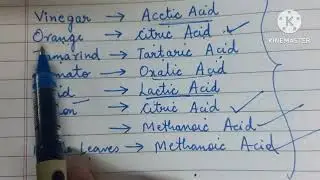 Vinegar → Acetic Acid
Orange → Citric Acid
Tamarind → Tartaric Acid
mato → Oxalic Acid
id → Lactic Acid
on → Citric Acid
→ Methanoic Acid
Leaves → Methanoic Acid
KINEMASTER